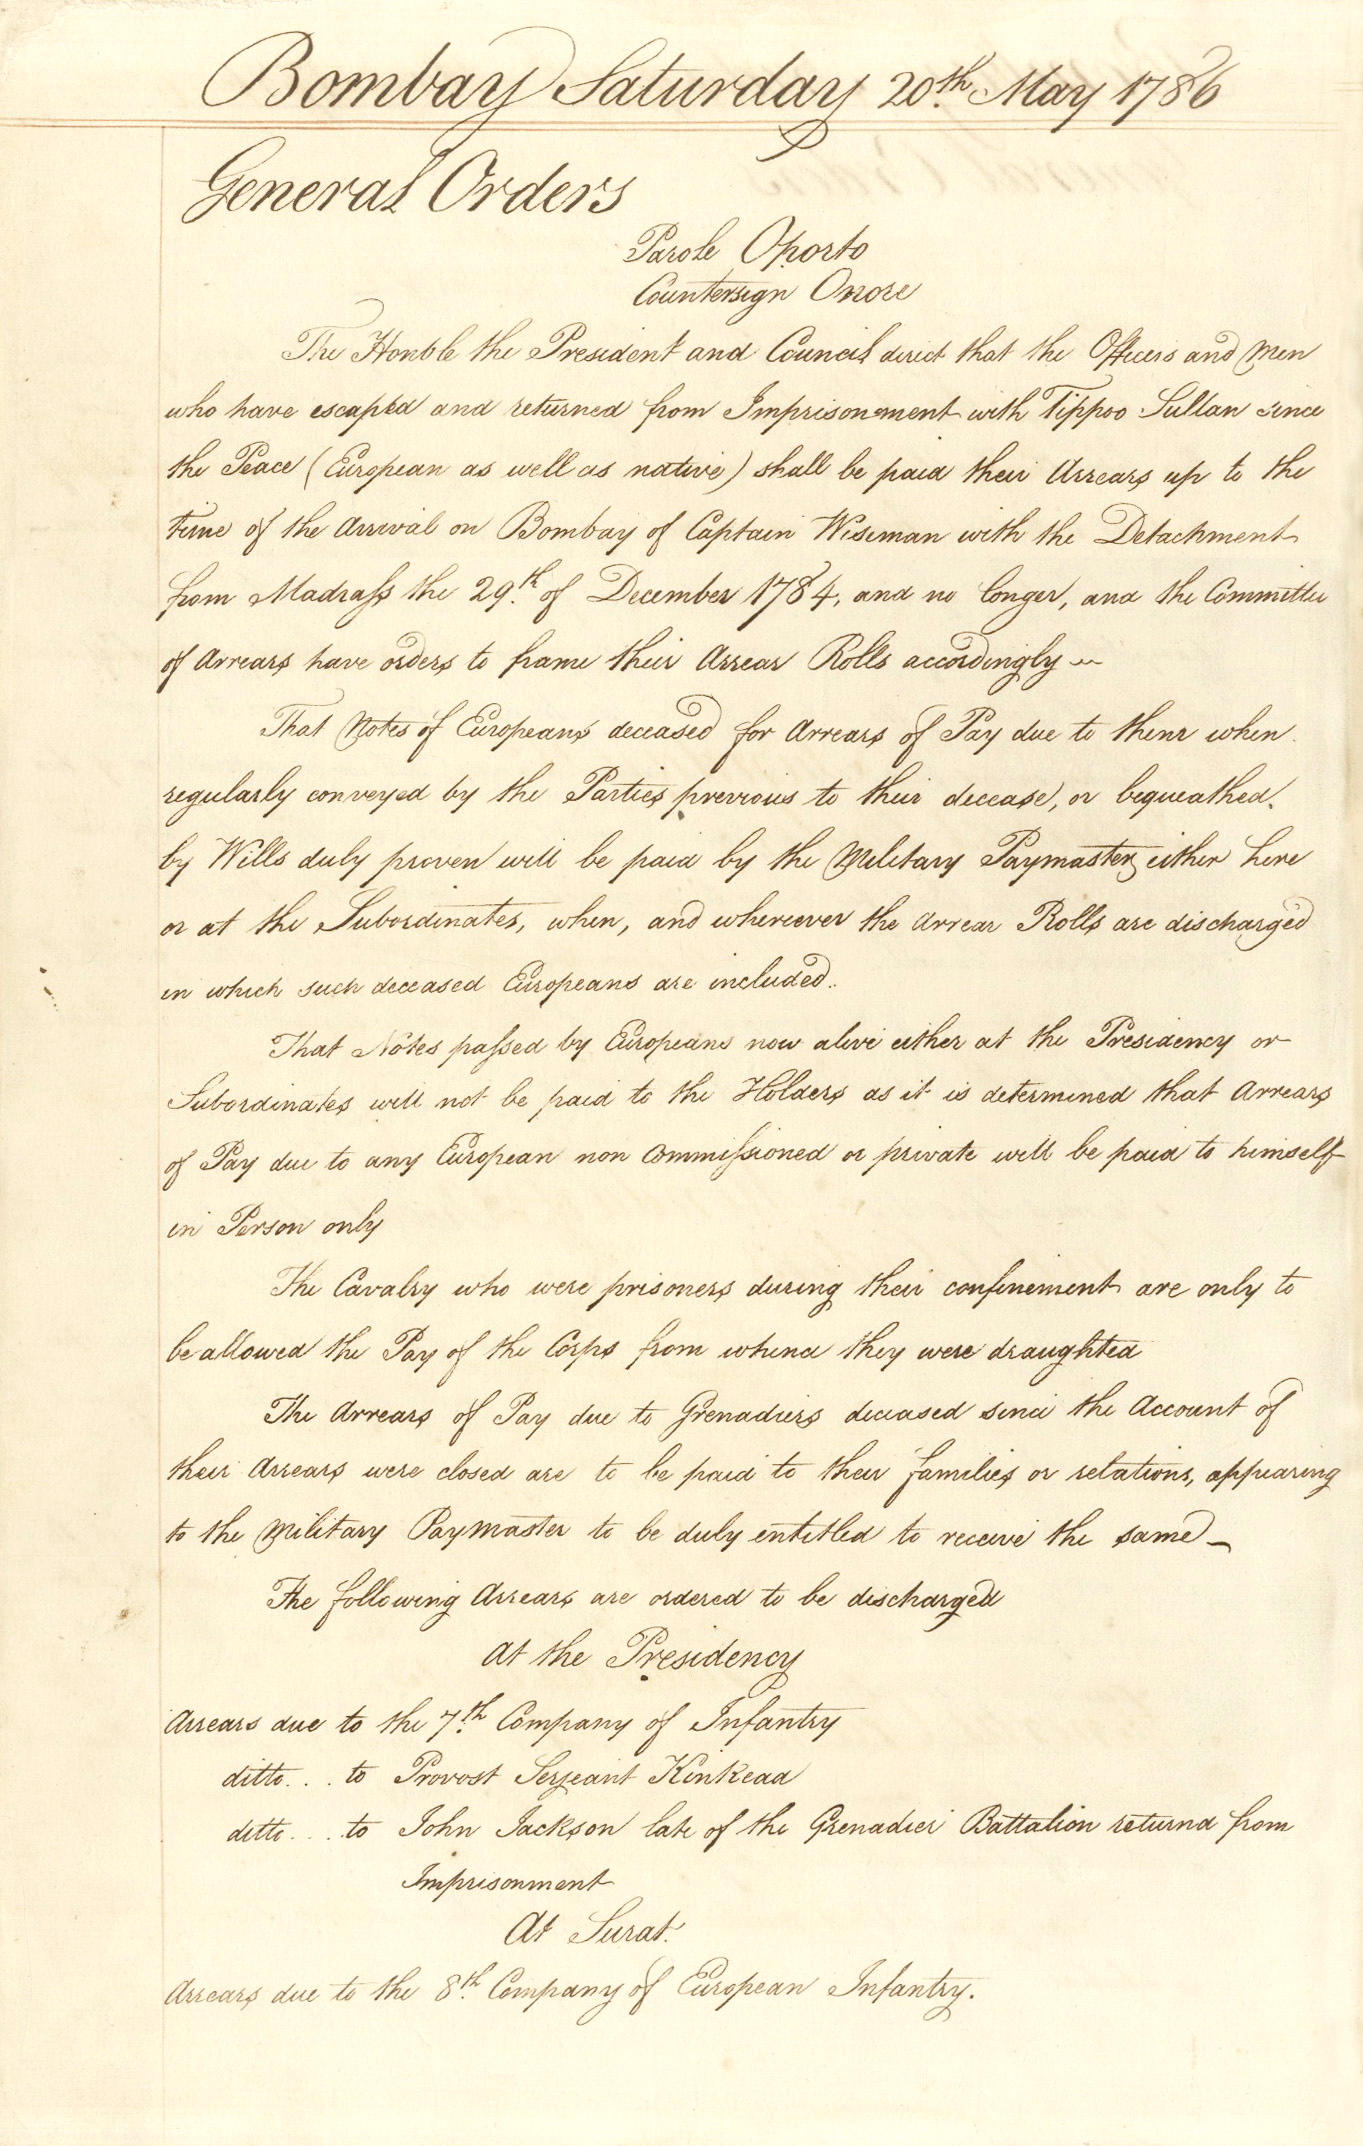 Bombay Saturday 20th. May 1786
General Orders
Parole Oporto
Countersign Onore
The Honble the President and Council direct that the Officers and Men
who have escaped and returned from Imprisonment with Tippoo Sultan since
the Peace (European as well as native) shall be paid their Arrears up to the
time of the Arrival on Bombay of Captain Wiseman with the Detachment
from Madrass the 29th. of December 1784, and no longer, and the Committee
of Arrears have orders to frame their Arrear Rolls accordingly
That Notes of Europeans deceased for Arrears of Pay due to them when
regularly conveyed by the Parties previous to their decease, or bequeathed
by Wills duly proven will be paid by the Military Paymaster either here
or at the Subordinates, when, and wherever the Arrear Rolls are discharged
in which such deceased Europeans are included.
That Notes passed by Europeans now alive either at the Presidency or
Subordinates will not be paid to the Holders as it is determined that Arrears
of Pay due to any European non commissioned or private will be paid to himself
in Person only
The Cavalry who were prisoners during their confinement are only to
be allowed the Pay of the Corps from whence they were draughted
The Arrears of Pay due to Grenadiers deceased since the Account of
their Arrears were closed are to be paid to their families or relations, appearing
to the Military Paymaster to be duly entitled to receive the same
The following Arrears are ordered to be discharged
At the Presidency
Arrears due to the 7th. Company of Infantry
ditto... to Provost Serjeant Kinkead
ditto.... to John Jackson late of the Grenadier Battalion returnd from
Imprisonment
At Surat.
Arrears due to the 8th. Company of European Infantry.